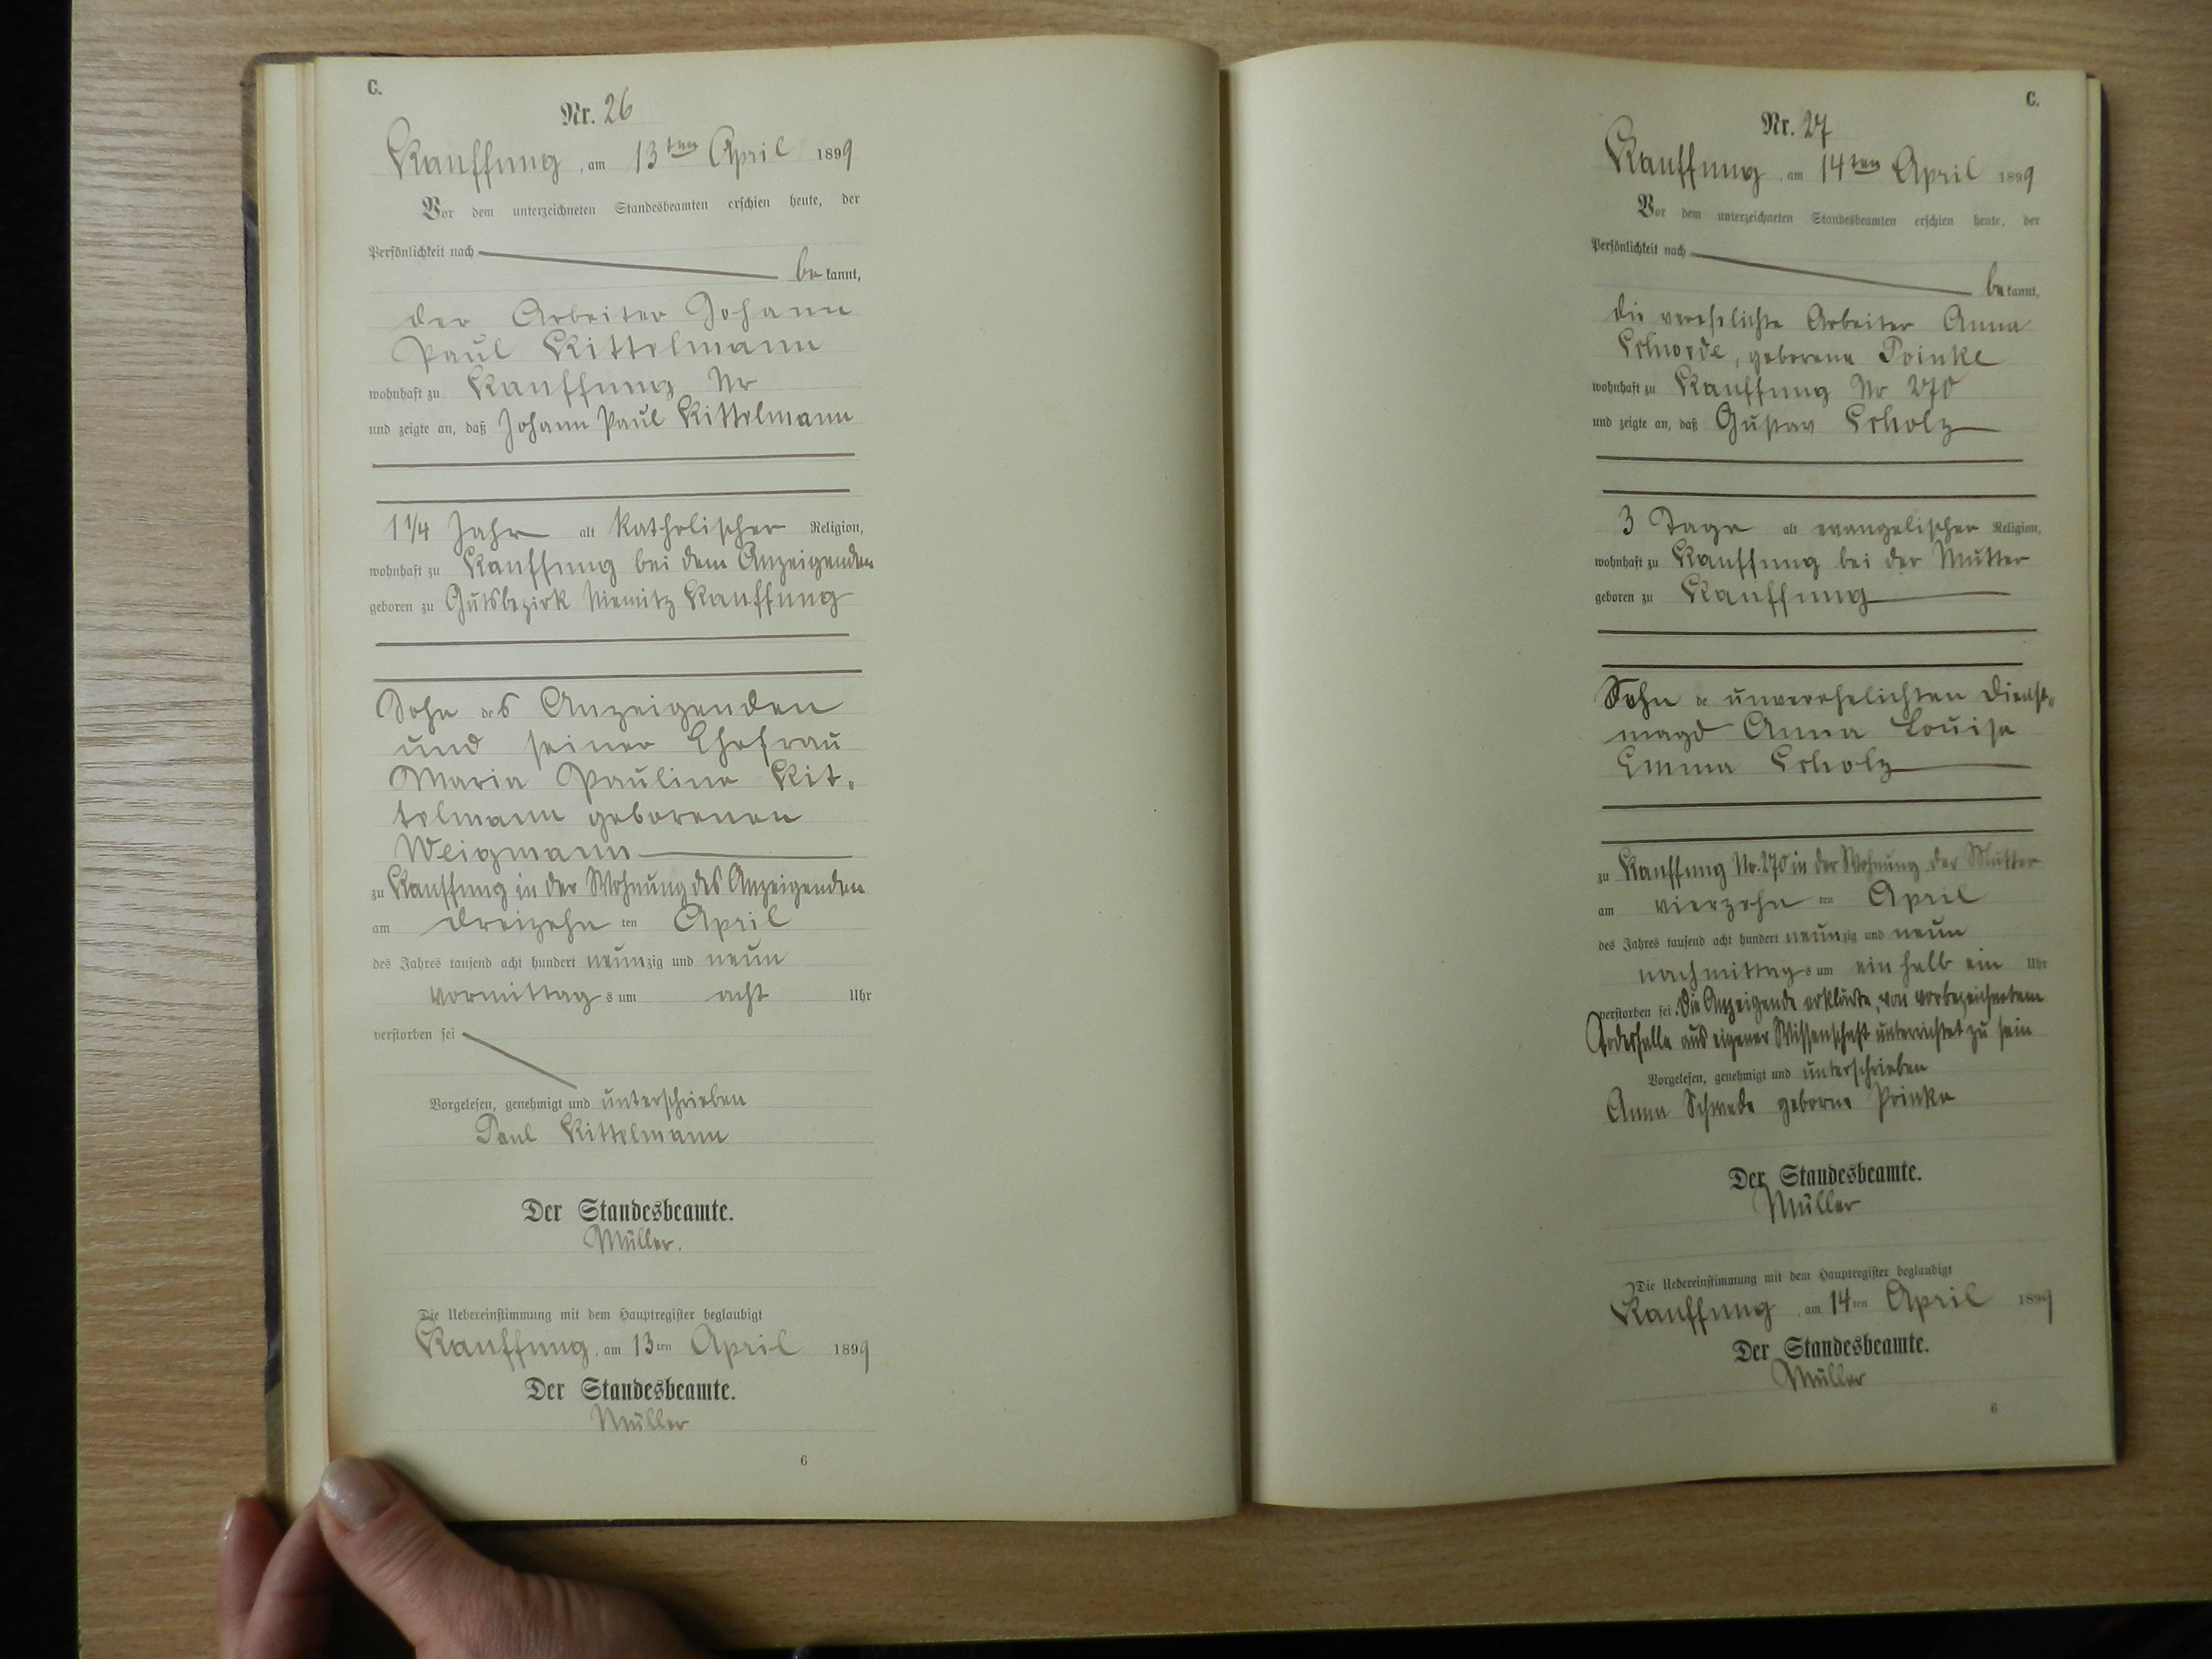 C.
Nr. 26
Kauffung, am 13ten April 1899
Vor dem unterzeichneten Standesbeamten erschien heute, der
Persönlichkeit nach
be kannt,
der Arbeiter Johann
Paul Kittelmann
wohnhaft zu Kauffung Nr
und zeigte an, daß Johann Paul Kittelmann
1 1/4 Jahr alt katholischer Religion,
wohnhaft zu Kauffung bei dem Anzeigenden
geboren zu Gutsbezirk Niemitz Kauffung
Sohn des Anzeigenden
und seiner Ehefrau
Maria Pauline Kit-
telmann geborenen
Weigmann
zu Kauffung in der Wohnung des Anzeigenden
am dreizehn ten April
des Jahres tausend acht hundert neunzig und neun
vormittag s um acht Uhr
verstorben sei
Vorgelesen, genehmigt und unterschrieben
Paul Kittelmann
Der Standesbeamte.
Müller.
Die Uebereinstimmung mit dem Hauptregister beglaubigt
Kauffung, am 13ten April 1899
Der Standesbeamte.
Müller
6
C.
Nr. 27
Kauffung, am 14ten April 1899
Vor dem unterzeichneten Standesbeamten erschien heute, der
Persönlichkeit nach
be kannt,
die verehelichte Arbeiter Anna
geborene
wohnhaft zu Kauffung Nr 270
und zeigte an, daß Gustav Scholz
3 Tage alt evangelischer Religion,
wohnhaft zu Kauffung bei der Mutter
geboren zu Kauffung
Sohn de unverehelichten Dienst-
magd Anna Louise
Emma Scholz
zu Kauffung Nr. 270 in der Wohnung der Mutter
am vierzehn ten April
des Jahres tausend acht hundert neunzig und neun
nachmittag s um ein halb ein Uhr
verstorben sei. Die Anzeigende erklärte, von vorbezeichnetem
Todesfalle aus eigener Wissenschaft unterrichtet zu sein
Vorgelesen, genehmigt und unterschrieben
Anna Schwede geborne Prinke
Der Standesbeamte.
Müller
Die Uebereinstimmung mit dem Hauptregister beglaubigt
Kauffung, am 14ten April 1899
Der Standesbeamte.
Müller
6